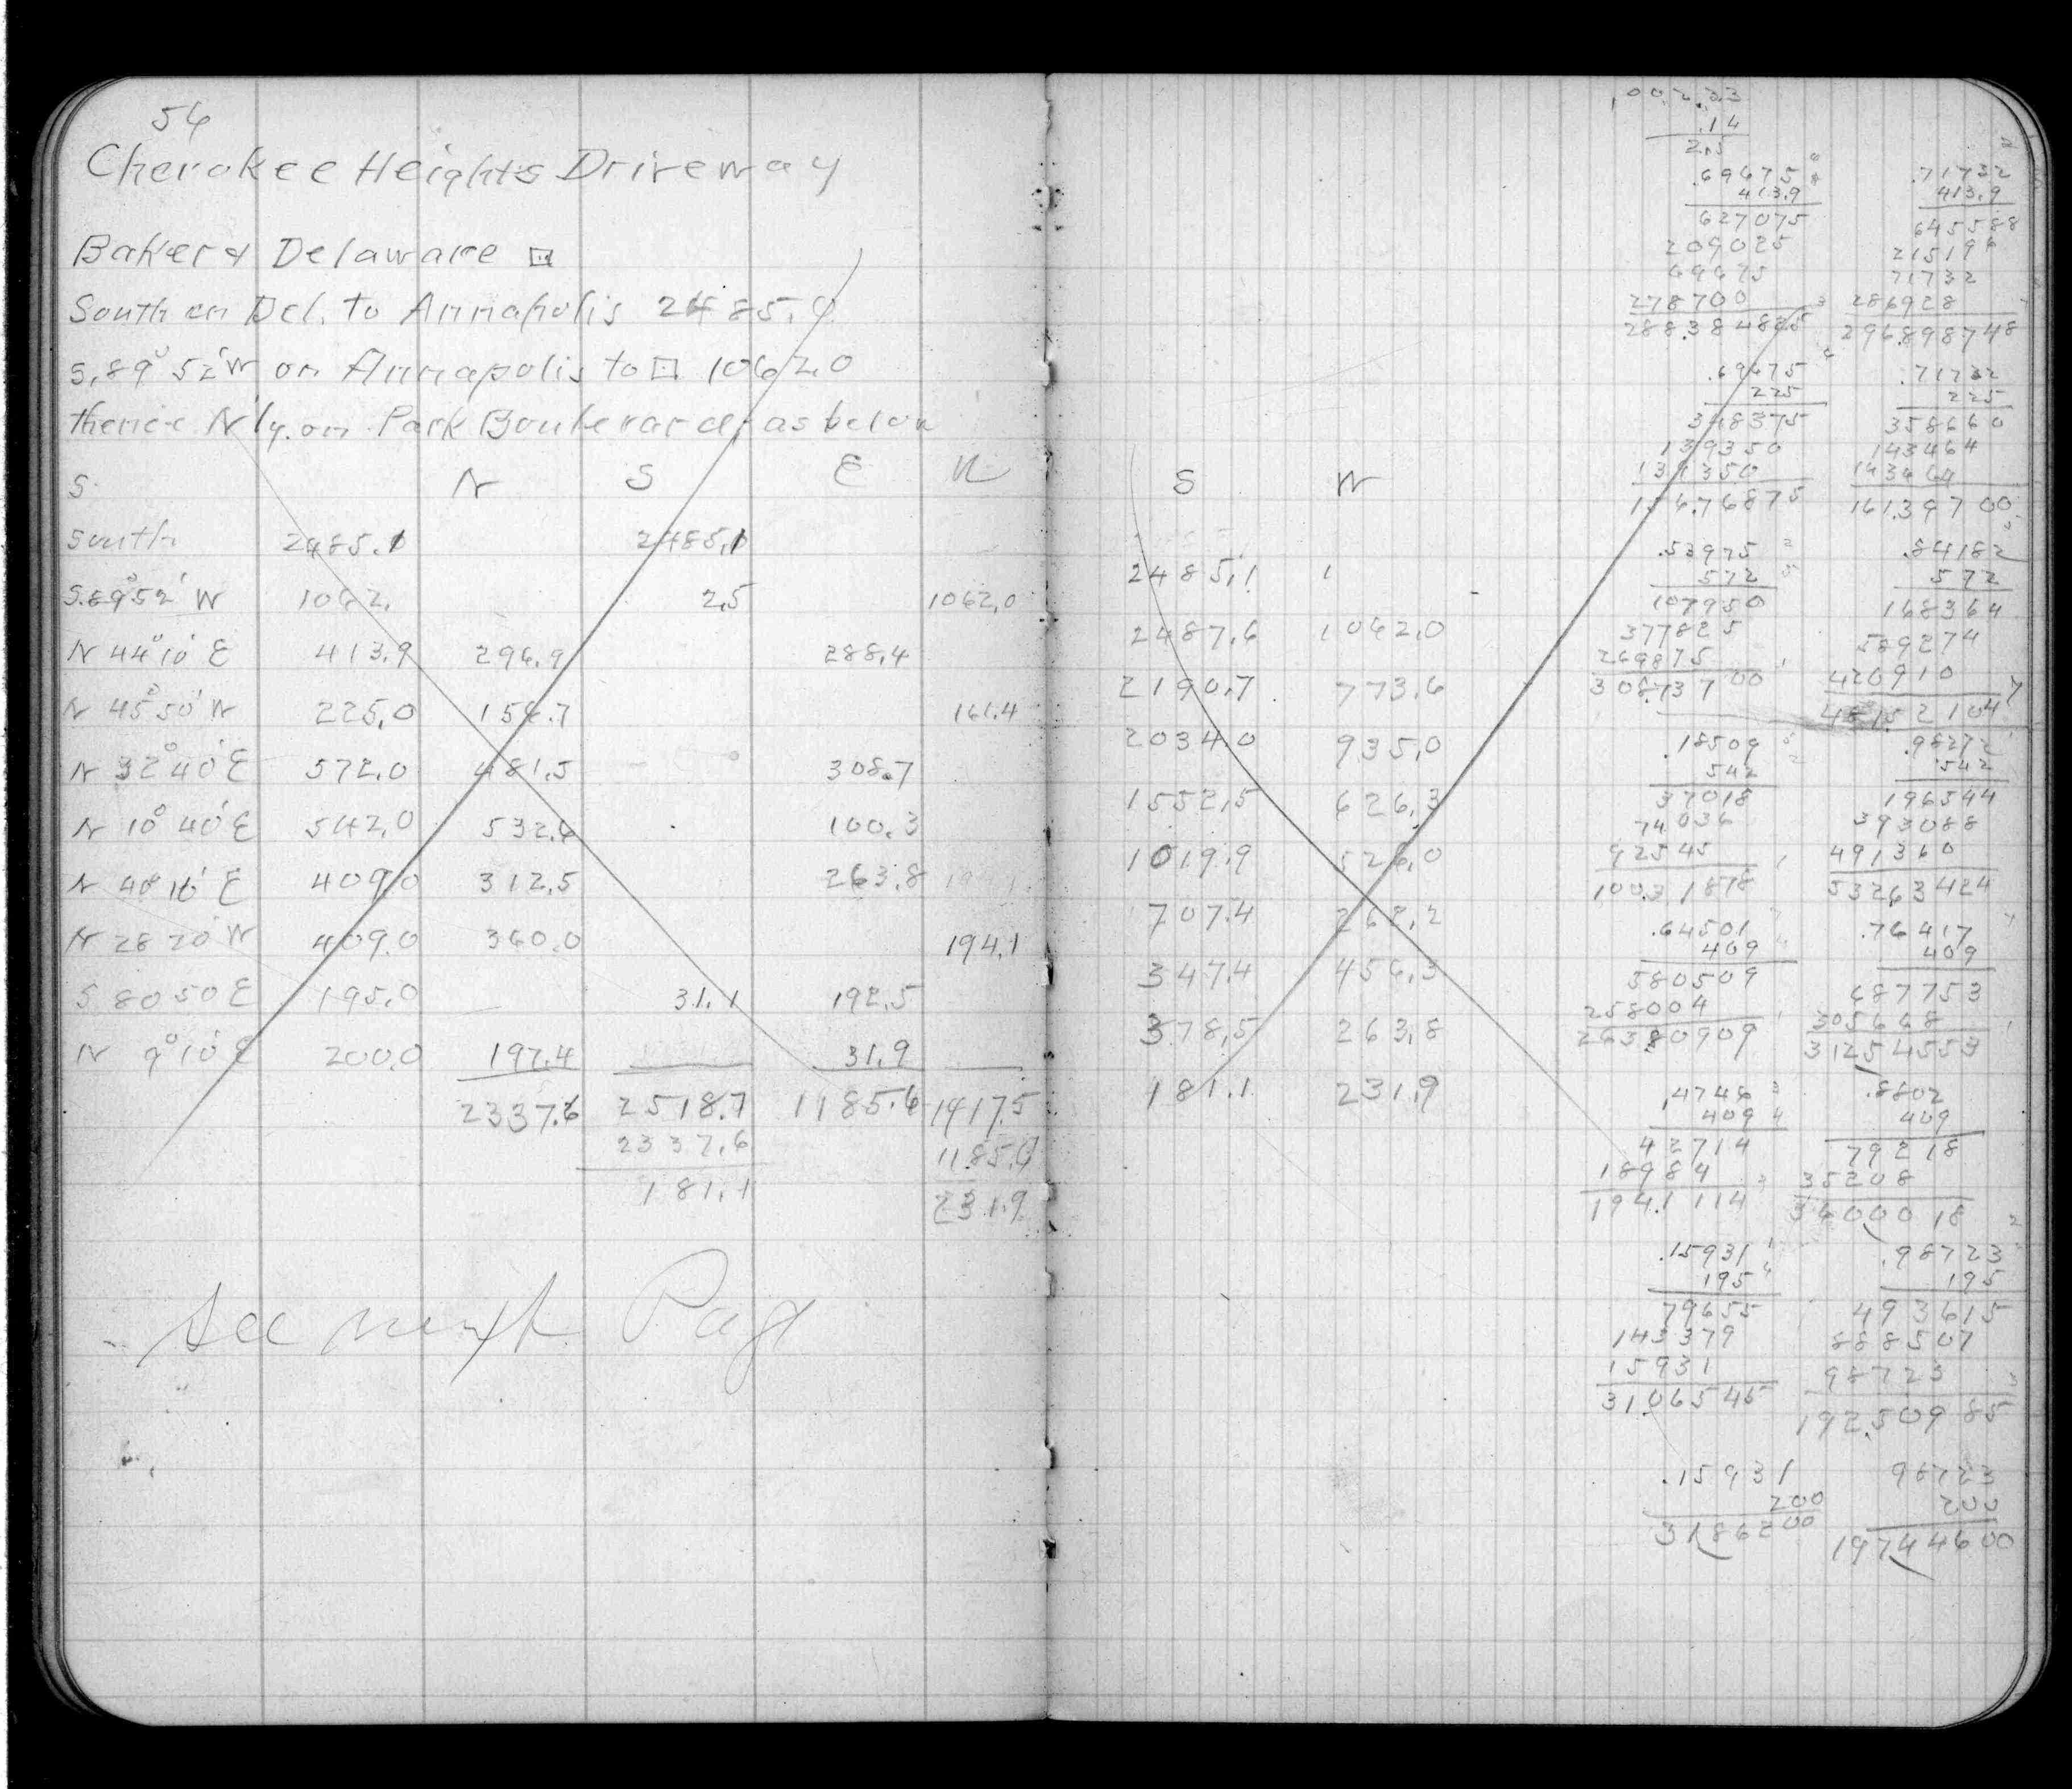 54
Cherokee Heights Driveway
Baker & Delaware ⊡
South on Del. to Annapolis 2485.0
S. 89° 52' W on Annapolis to ⊡ 1062.0
thence N'ly. on Park Boulevard, as below
S. N S E W
South 2485.1 2485.1
S. 89° 52' W 1062. 2.5 1062.0
N 44° 10' E 413.9 296.9 288.4
N 45° 50' W 225.0 156.7 161.4
N 32° 40' E 572.0 481.5 308.7
N 10° 40' E 542.0 532.6 100.3
N 40° 10' E 409.0 312.5 263.8
N 28 20' W 409.0 360.0 194.1
S. 80 50 E 195.0 31.1 192.5
N 9° 10' E 200.0 197.4 31.9
2337.6 2518.7 1185.6 1417.5
2337.6 1185.6
181.1 231.9
See next Page
S W
2485.1
2487.6 1062.0
2190.7 773.6
2034.0 935.0
1552.5 626.3
1019.9 526.0
707.4 262.2
347.4 456.3
378.5 263.8
181.1 231.9
.00233
.14
2.5
.69675 .71732
413.9 413.9
627075 645588
209025 215196
69675 71732
278700 286928
288.384825 296.898748
.69675 .71732
225 225
348375 358660
139350 143464
139350 143464
156.76875 161.39700
.53975 .84182
572 572
107950 168364
377825 589274
269875 420910
308.73700 481.52104
.18509 .98272
542 542
37018 196544
74036 393088
92545 491360
100.31878 532.63424
.64501 .76417
409 409
580509 687753
258004 305668
263.80909 312.54553
.4746 .8802
409 409
42714 79218
18984 35208
194.1114 360.0018
.15931 .98723
195 195
79655 493615
143379 888507
15931 98723
31.06545 192.50985
.15931 98723
200 200
31.86200 197.44600